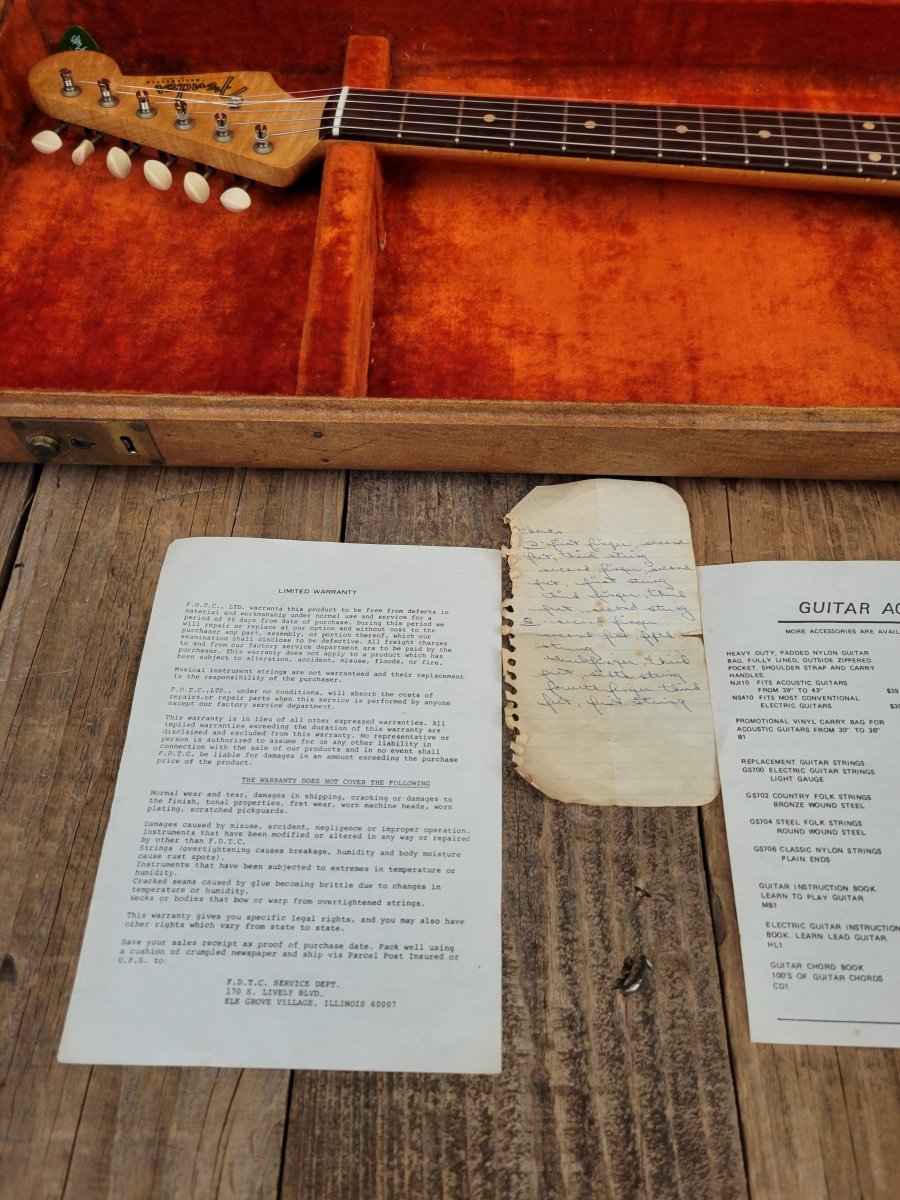 Fender
LIMITED WARRANTY
F.D.T.C., LTD. warrants this product to be free from defects in
material and workmanship under normal use and service for a
period of 90 days from date of purchase. During this period we
will repair or replace at our option and without cost to the
purchaser any part, assembly, or portion thereof, which our
examination shall disclose to be defective. All freight charges
to and from our factory service department are to be paid by the
purchaser. This warranty does not apply to a product which has
been subject to alteration, accident, misuse, floods, or fire.
Musical instrument strings are not warranted and their replacement
is the responsibility of the purchaser.
F.D.T.C.,LTD., under no conditions, will absorb the costs of
repairs,or repair parts when this service is performed by anyone
except our factory service department.
This warranty is in lieu of all other expressed warranties. All
implied warranties exceeding the duration of this warranty are
disclaimed and excluded from this warranty. No representative or
person is authorized to assume for us any other liability in
connection with the sale of our products and in no event shall
F.D.T.C. be liable for damages in an amount exceeding the purchase
price of the product.
THE WARRANTY DOES NOT COVER THE FOLLOWING
Normal wear and tear, damages in shipping, cracking or damages to
the finish, tonal properties, fret wear, worn machine heads, worn
plating, scratched pickguards.
Damages caused by misuse, accident, negligence or improper operation.
Instruments that have been modified or altered in any way or repaired
by other than F.D.T.C.
Strings (overtightening causes breakage, humidity and body moisture
cause rust spots).
Instruments that have been subjected to extremes in temperature or
humidity.
Cracked seams caused by glue becoming brittle due to changes in
temperature or humidity.
Necks or bodies that bow or warp from overtightened strings.
This warranty gives you specific legal rights, and you may also have
other rights which vary from state to state.
Save your sales receipt as proof of purchase date. Pack well using
a cushion of crumpled newspaper and ship via Parcel Post Insured or
U.P.S. to:
F.D.T.C. SERVICE DEPT.
170 S. LIVELY BLVD.
ELK GROVE VILLAGE, ILLINOIS 60007
Chords
D - first finger, second
fret, third string
second finger, second
fret, first string
third finger third
fret, second string
second finger
second fret fifth
string
third finger third
fret, sixth string
fourth finger third
fret, first string
GUITAR AC
MORE ACCESSORIES ARE AVAIL
HEAVY DUTY, PADDED NYLON GUITAR
BAG. FULLY LINED, OUTSIDE ZIPPERED
POCKET. SHOULDER STRAP AND CARRY
HANDLES.
NJ110 FITS ACOUSTIC GUITARS
FROM 39" TO 43" $39
NS410 FITS MOST CONVENTIONAL
ELECTRIC GUITARS $39
PROMOTIONAL VINYL CARRY BAG FOR
ACOUSTIC GUITARS FROM 30" TO 36"
B1
REPLACEMENT GUITAR STRINGS
GS700 ELECTRIC GUITAR STRINGS
LIGHT GAUGE
GS702 COUNTRY FOLK STRINGS
BRONZE WOUND STEEL
GS704 STEEL FOLK STRINGS
ROUND WOUND STEEL
GS706 CLASSIC NYLON STRINGS
PLAIN ENDS
GUITAR INSTRUCTION BOOK
LEARN TO PLAY GUITAR
MB1
ELECTRIC GUITAR INSTRUCTION
BOOK. LEARN LEAD GUITAR.
HL1
GUITAR CHORD BOOK
100'S OF GUITAR CHORDS
CD1